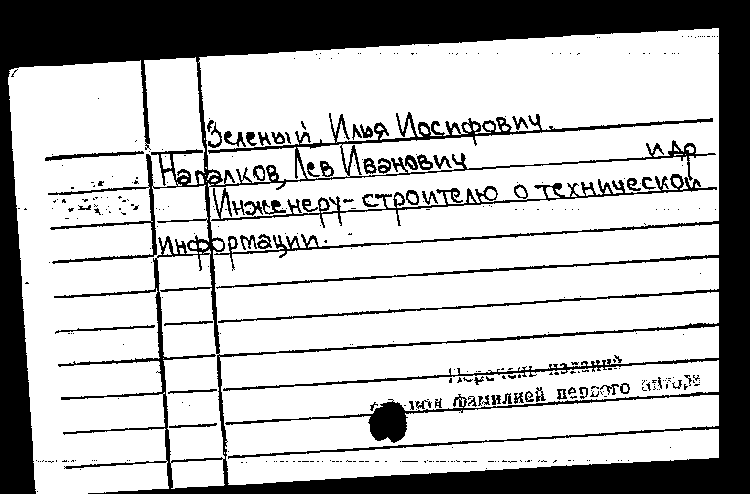 Зеленый, Илья Иосифович.
Напалков, Лев Иванович и др
Инженеру-строителю о технической
информации.
Перечень изданий
фамилией первого автора